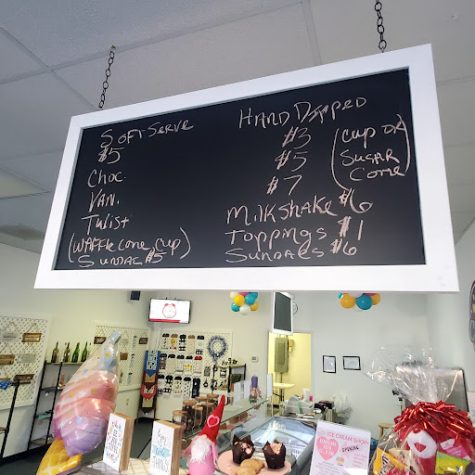 Soft Serve
$5
Choc.
Van.
Twist
(Waffle cone, cup)
Sundae $5
Hand Dipped
$3
$5
$7
(cup or
Sugar
Cone)
Milkshake $6
Toppings $1
Sundaes $6
ICE CREAM SHOP
SPECIAL